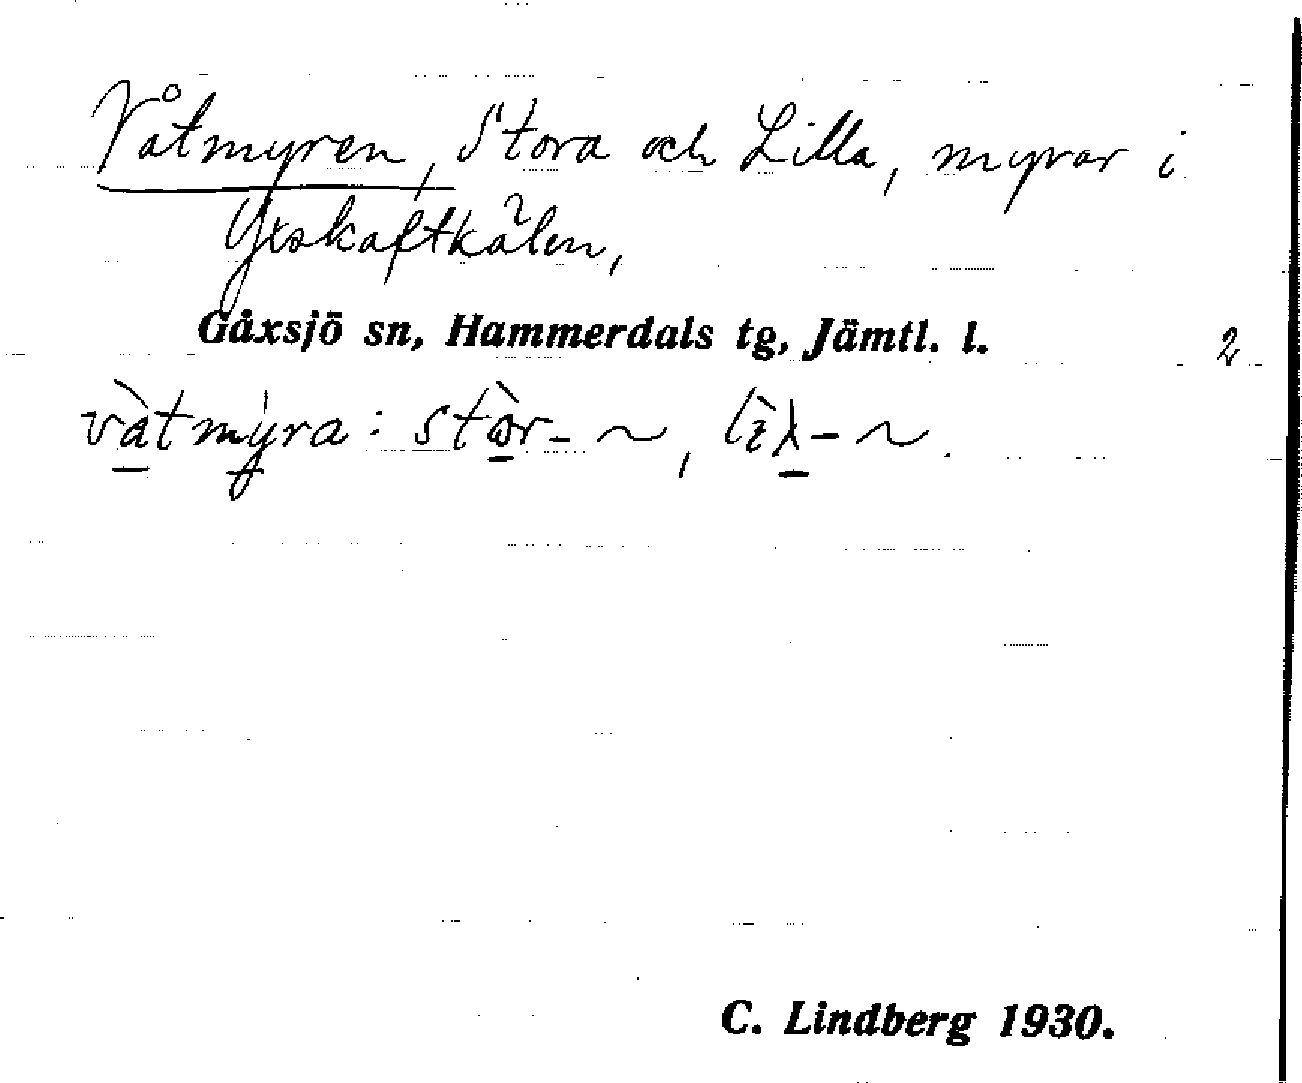 Våtmyren, Stora och Lilla, myrar i
Yxskaftkälen,
Gåxsjö sn, Hammerdals tg, Jämtl. l.
2
vàtmýra: stòr- ~,
C. Lindberg 1930.